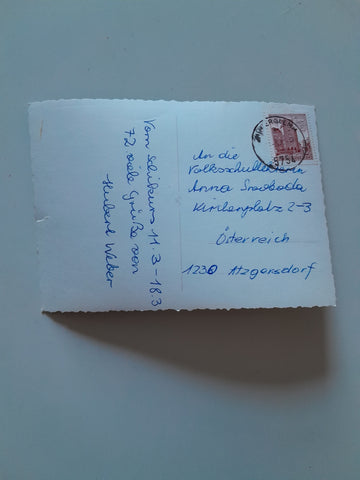 Vom Schikurs 11.3-18.3
72 viele Grüße von
Hubert Weber
An die
Volksschullehrerin
Anna Swoboda
Kirchenplatz 2-3
Österreich
1230 Atzgersdorf
5754